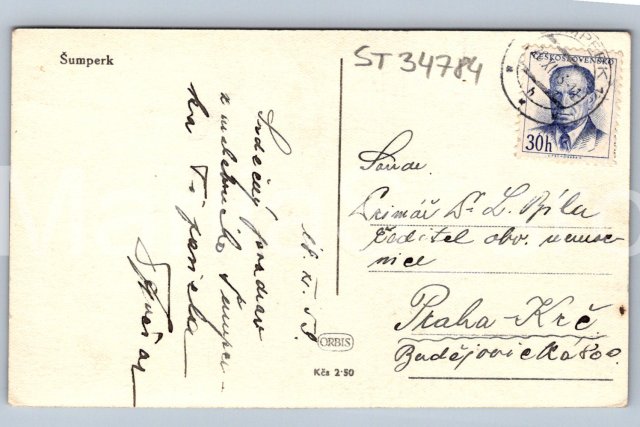 Šumperk
ST 34784
ČESKOSLOVENSKO
30h
Srdečný pozdrav
z malebného Šumper-
ka Ti posíla
16. XI. 53.
Soudr.
Primář Dr L. Bíla
Ředitel obv. nemoc-
nice
Praha-Krč
Budějovická 800
ORBIS
Kčs 2·50